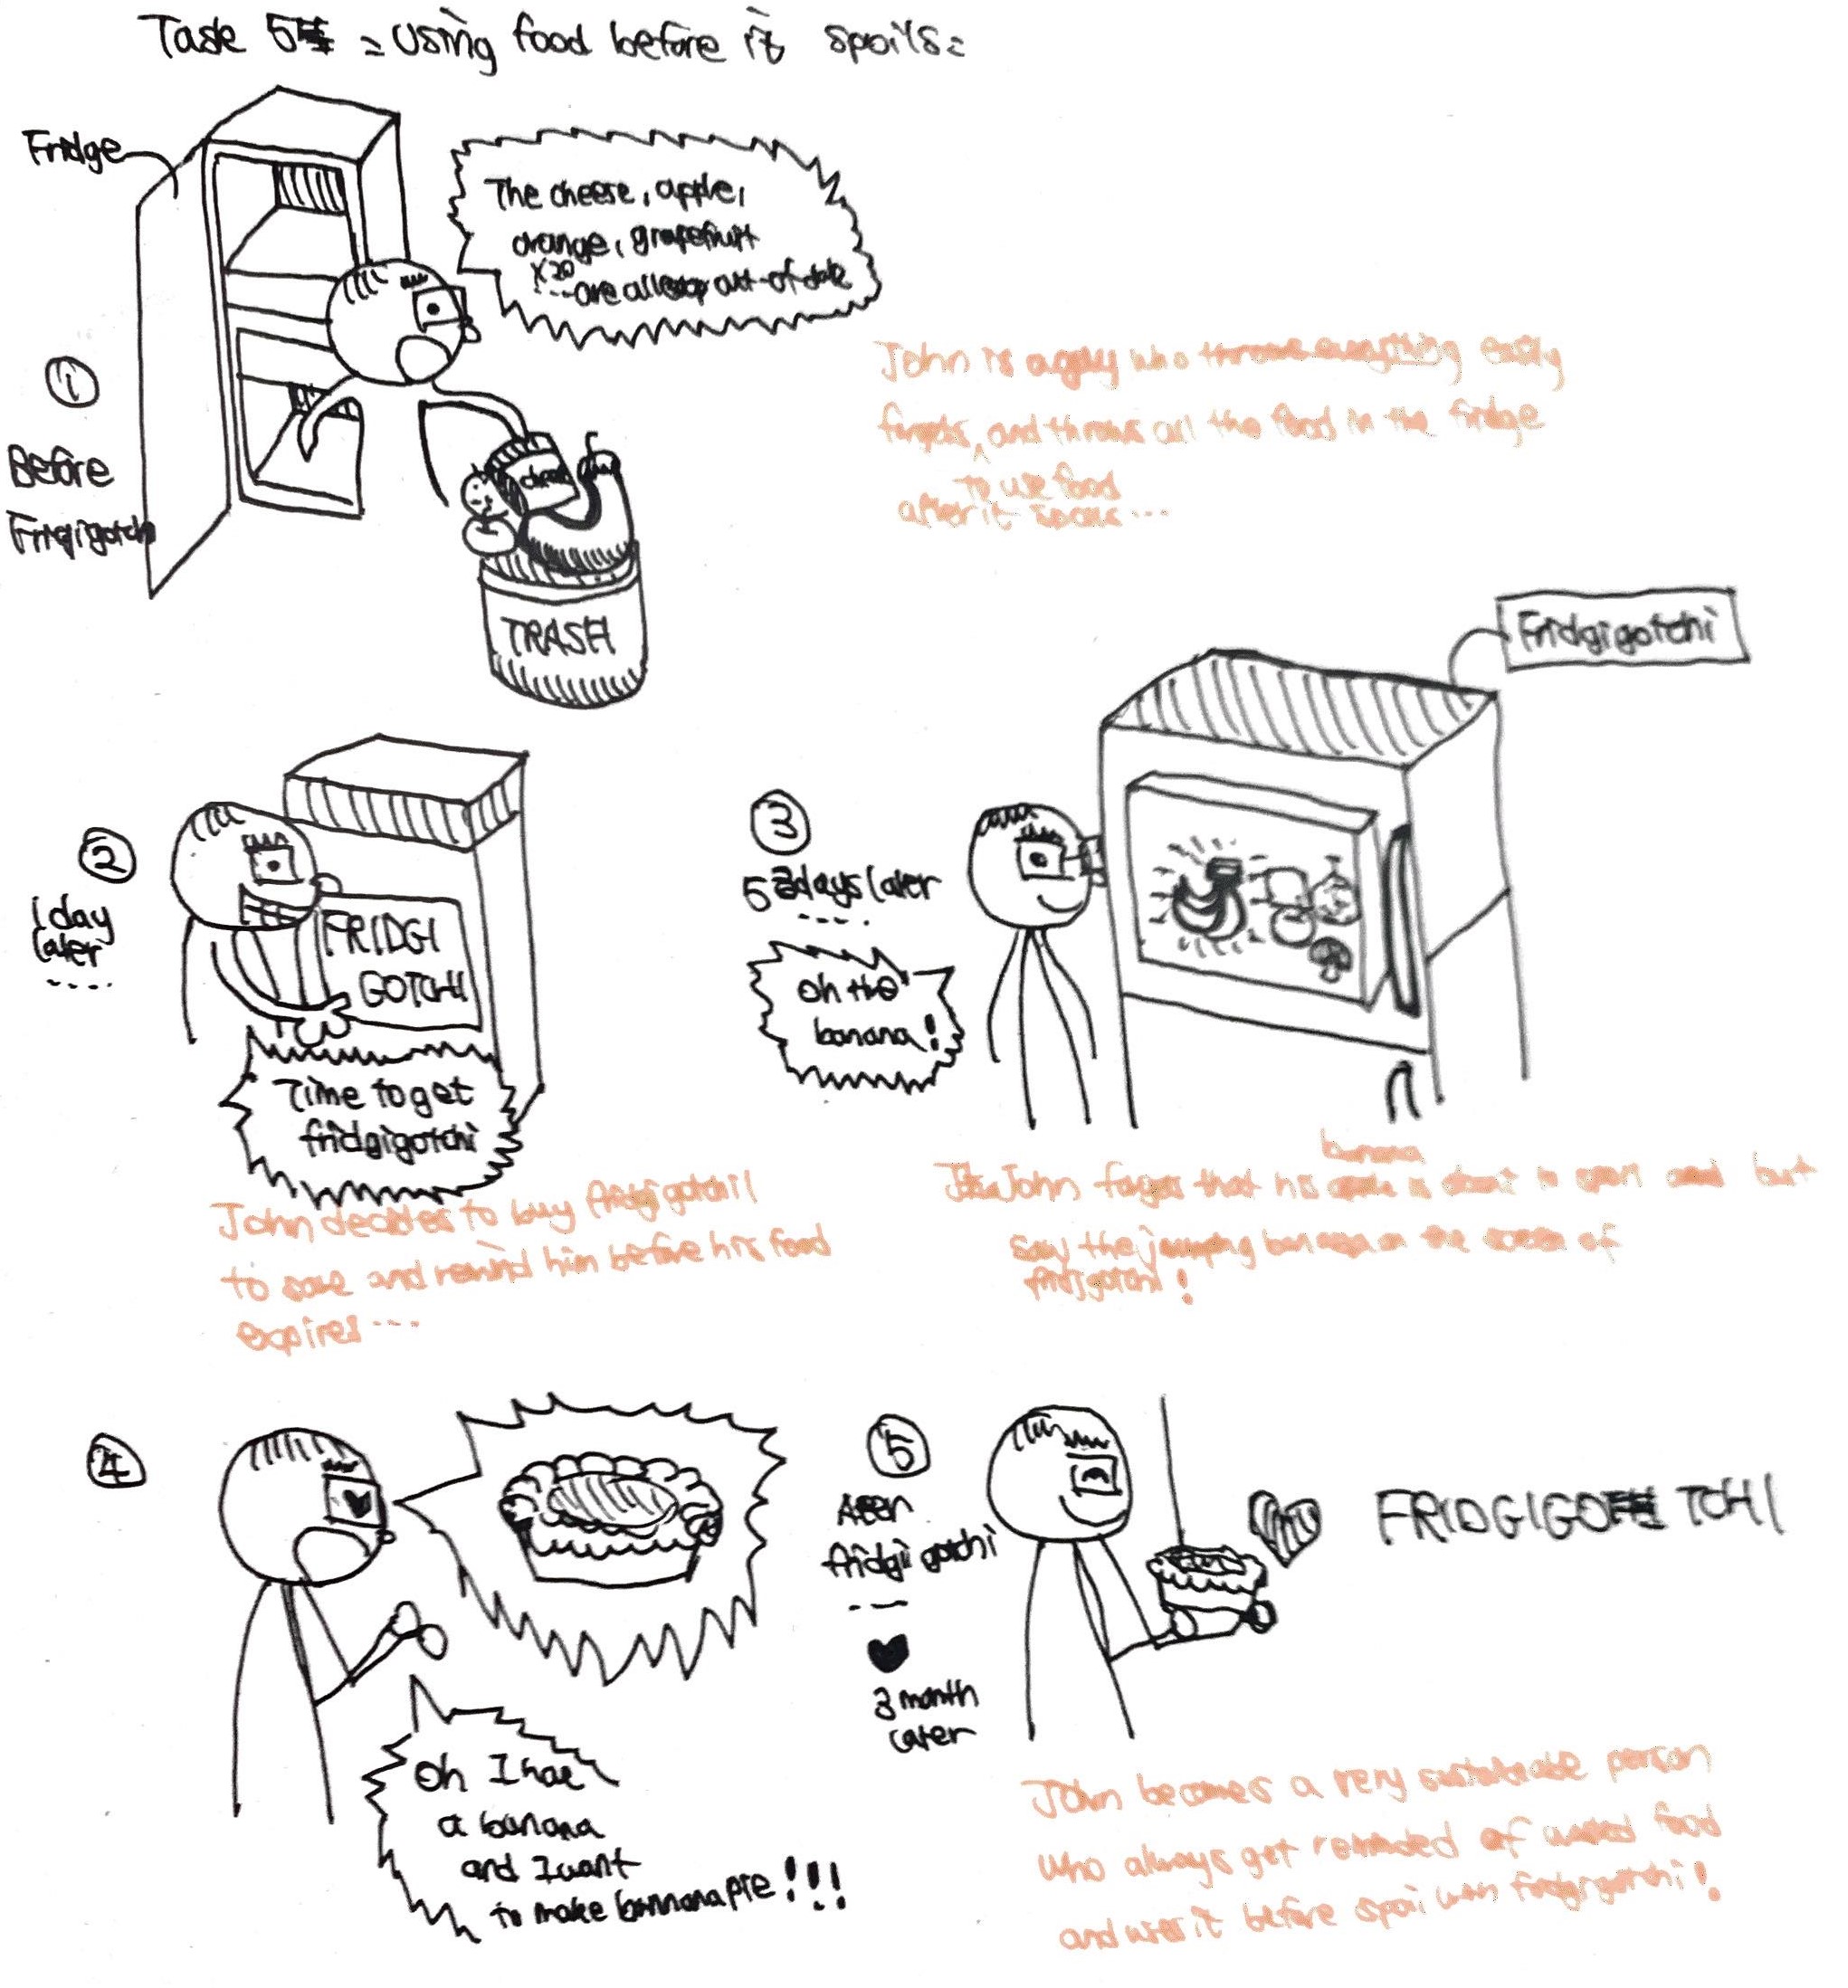 Task 5 = using food before it spoils =
Fridge
The cheese, apple,
orange, grapefruit
x20
... are all out-of-date
1
Before
Fridgigotchi
John is a guy who easily
forgets, and throws all the food in the fridge
to use food
after it spoils ...
TRASH
cheese
Fridgigotchi
2
1 day
later
.....
FRIDGI
GOTCHI
Time to get
fridgigotchi
John decides to buy fridgigotchi
to save and remind him before his food
expires ...
3
5 days later
....
Oh the
banana!
banana
John forgot that his is about to spoil but
saw the jumping banana on the screen of
fridgigotchi!
4
Oh I have
a banana
and I want
to make bannana pie!!!
5
After
fridgigotchi
---
3 month
later
FRIDGIGOTCHI
John becomes a very sustainable person
who always get reminded of unused food
and uses it before spoil with fridgigotchi!